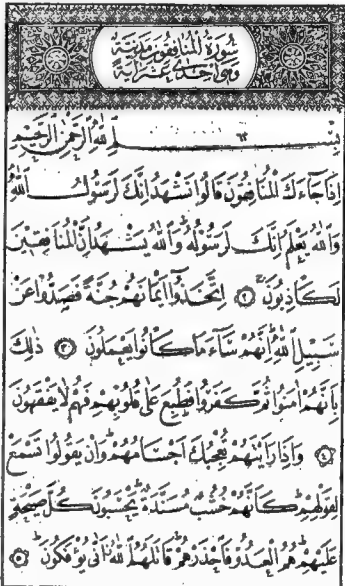 سُورَةُ الْمُنَافِقُونَ مَدَنِيَّةٌ
وَهِيَ اِحْدٰى عَشَرَ اٰيَةً
بِسْمِ اللّٰهِ الرَّحْمٰنِ الرَّحِيمِ
اِذَا جَٓاءَكَ الْمُنَافِقُونَ قَالُوا نَشْهَدُ اِنَّكَ لَرَسُولُ اللّٰهِ
وَاللّٰهُ يَعْلَمُ اِنَّكَ لَرَسُولُهُ وَاللّٰهُ يَشْهَدُ اِنَّ الْمُنَافِقِينَ
لَكَاذِبُونَ ۝٢ اِتَّخَذُٓوا اَيْمَانَهُمْ جُنَّةً فَصَدُّوا عَنْ
سَبِيلِ اللّٰهِ اِنَّهُمْ سَٓاءَ مَا كَانُوا يَعْمَلُونَ ۝٣ ذٰلِكَ
بِاَنَّهُمْ اٰمَنُوا ثُمَّ كَفَرُوا فَطُبِعَ عَلٰى قُلُوبِهِمْ فَهُمْ لَا يَفْقَهُونَ
۝٤ وَاِذَا رَاَيْتَهُمْ تُعْجِبُكَ اَجْسَامُهُمْ وَاِنْ يَقُولُوا تَسْمَعْ
لِقَوْلِهِمْ كَاَنَّهُمْ خُشُبٌ مُسَنَّدَةٌ يَحْسَبُونَ كُلَّ صَيْحَةٍ
عَلَيْهِمْ هُمُ الْعَدُوُّ فَاحْذَرْهُمْ قَاتَلَهُمُ اللّٰهُ اَنّٰى يُؤْفَكُونَ ۝٥